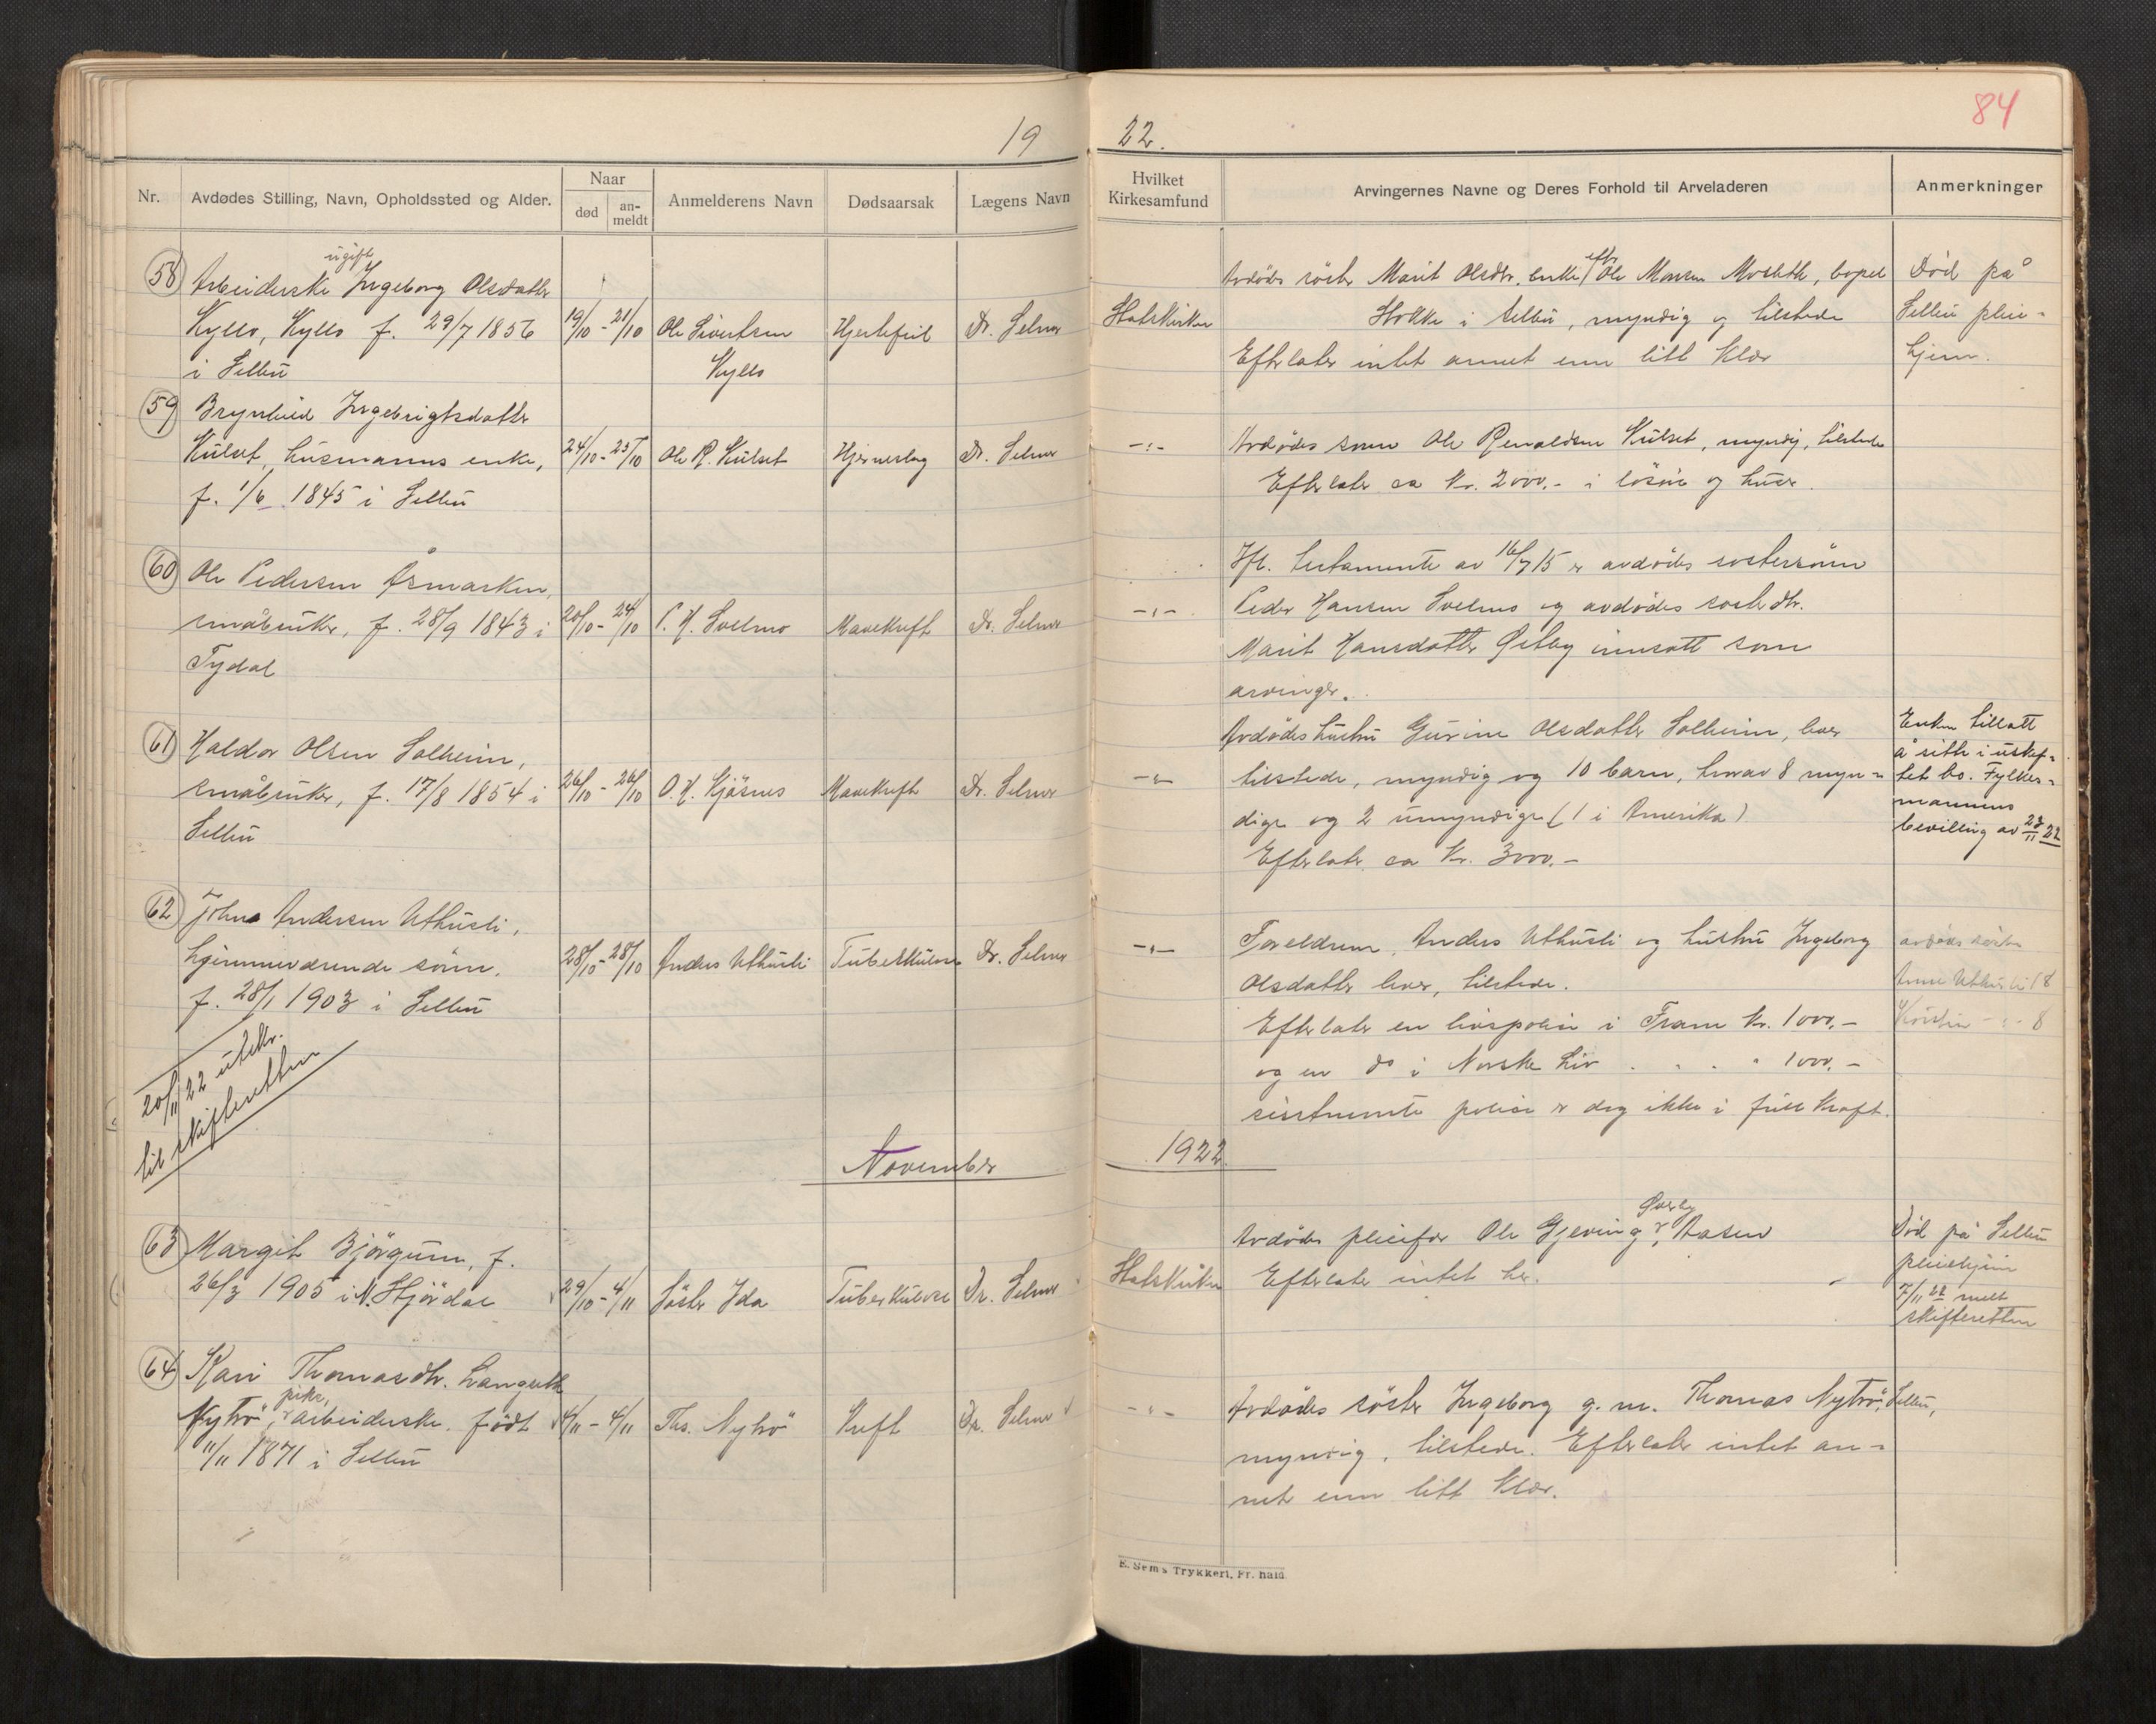 84
19 22.
Nr. Avdødes Stilling, Navn, Opholdssted og Alder. Naar død an-meldt Anmelderens Navn Dødsaarsak Lægens Navn
Hvilket Kirkesamfund Arvingernes Navne og Deres Forhold til Arveladeren Anmerkninger
58
ugift
Arbeiderske Ingeborg Olsdatter
Kyllo, Kyllo f. 29/7 1856
i Selbu
19/10 - 21/10
Ole Sivertsen
Kyllo
Hjertefeil
Dr. Selmer
Statskirken
Avdødes søster Marit Olsdtr. enke efter Ole Monsen Moslett, bopel
Stokke i Selbu, myndig og tilstede
Efterlater intet annet enn litt klær
Død på
Selbu pleie-
hjem.
59
Brynhild Ingebrigtsdatter
Kulset, husmanns enke,
f. 1/6 1845 i Selbu
24/10 - 25/10
Ole R. Kulset
Hjerneslag
Dr. Selmer
-"-
Avdødes sønn Ole Renaldsen Kulset, myndig, tilstede
Efterlater ca kr. 2000.- i løsøre og huer.
60
Ole Pedersen Åsmarken,
småbruker, f. 28/9 1843 i
Tydal
20/10 - 24/10
P. H. Svelmo
Mavekreft
Dr. Selmer
-"-
Ifl. testamente av 16/7 15 er avdødes søstersønn
Peder Hansen Svelmo og avdødes søsterdtr.
Marit Hansdatter Østby innsatt som
arvinger.
61
Haldor Olsen Solheim,
småbruker, f. 17/8 1854 i
Selbu
26/10 - 26/10
O. H. Kjøsnes
Mavekreft
Dr. Selmer
-"-
Avdødes hustru Gurine Olsdatter Solheim, lever
tilstede, myndig og 10 barn, hvorav 8 myn-
dige og 2 umyndige (1 i Amerika)
Efterlater ca kr. 3000.-
Enken tillatt
å sitte i uskif-
tet bo. Fylkes-
mannens
bevilling av 28/11 22
62
John Andersen Uthusli,
hjemmeværende sønn.
f. 28/1 1903 i Selbu
28/10 - 28/10
Anders Uthusli
Tuberkulose
Dr. Selmer
-"-
Foreldrene, Anders Uthusli og hustru Ingeborg
Olsdatter lever, tilstede.
Efterlater en livspolise i Fram kr. 1000.-
og en do i Norske Liv . . . " 1000.-
sistnevnte polise er dog ikke i full kraft.
avdødes søster
Anne Uthusli 18
Kirstin -"- 8
20/11 22 utskr.
til skifteretten
November 1922
63
Margit Bjørgum, f.
26/3 1905 i N. Stjørdal
29/10 - 4/11
Søster Ida
Tuberkulose
Dr. Selmer
Statskirken
Øverby
Avdødes pleiefar Ole Gjeving, Aasen
Efterlater intet her.
Død på Selbu
pleiehjem
7/11 22 melt
skifteretten
64
Kari Thomasdtr. Langseth
pike,
Nytrö, arbeiderske. født
11/11 1871 i Selbu
4/11 - 4/11
Ths. Nytrö
Kreft
Dr. Selmer
-"-
Avdødes søster Ingeborg g. m. Thomas Nytrö, Selbu,
myndig, tilstede. Efterlater intet an-
net enn litt klær.
E. Sem's Trykkeri, Fr. hald